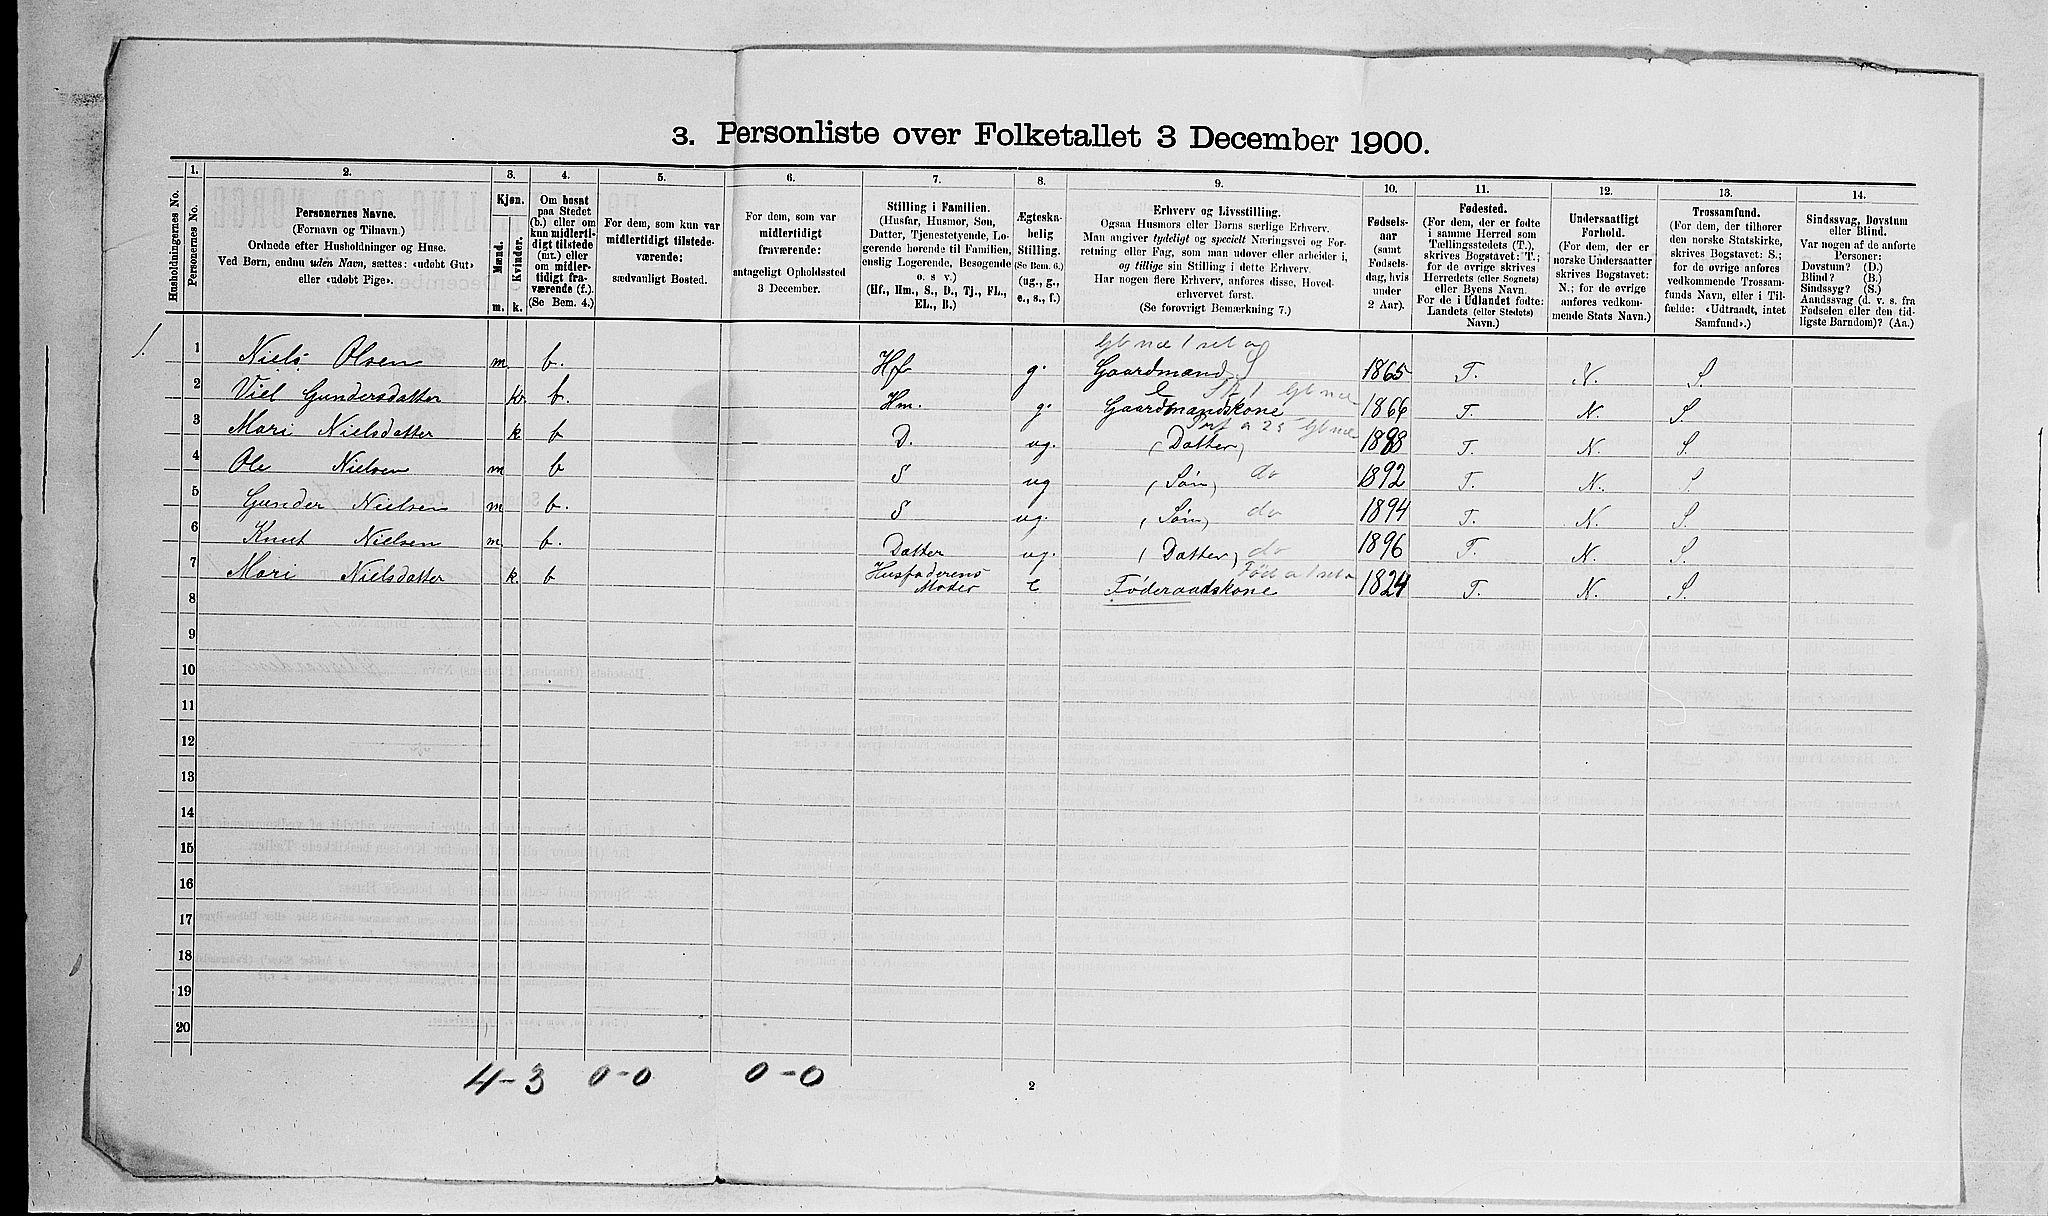 3. Personliste over Folketallet 3 December 1900.
Husholdningernes No.
1.
Personernes No.
2.
Personernes Navne.
(Fornavn og Tilnavn.)
Ordnede efter Husholdninger og Huse.
Ved Børn, endnu uden Navn, sættes: «udøbt Gut»
eller «udøbt Pige».
3.
Kjøn.
Mænd.
Kvinder.
m. k.
4.
Om bosat
paa Stedet
(b.) eller om
kun midlerti-
digt tilstede
(mt.) eller
om midler-
tidigt fra-
værende (f.).
(Se Bem. 4.)
5.
For dem, som kun var
midlertidigt tilstede-
værende:
sædvanligt Bosted.
6.
For dem, som var
midlertidigt
fraværende:
antageligt Opholdssted
3 December.
7.
Stilling i Familien.
(Husfar, Husmor, Søn,
Datter, Tjenestetyende, Lo-
gerende hørende til Familien,
enslig Logerende, Besøgende
o. s v.)
(Hf., Hm., S., D., Tj., FL.,
EL., B.)
8.
Ægteska-
belig
Stilling.
(Se Bem. 6.)
(ug., g.,
e., s., f.)
9.
Erhverv og Livsstilling.
Ogsaa Husmors eller Børns særlige Erhverv.
Man angiver tydeligt og specielt Næringsvei og For-
retning eller Fag, som man udøver eller arbeider i,
og tillige sin Stilling i dette Erhverv.
Har nogen flere Erhverv, anføres disse, Hoved-
erhvervet først.
(Se forøvrigt Bemærkning 7.)
10.
Fødsels-
aar
(samt
Fødsels-
dag, hvis
under
2 Aar).
11.
Fødested.
(For dem, der er fødte
i samme Herred som
Tællingsstedets (T.),
skrives Bogstavet: T.;
for de øvrige skrives
Herredets (eller Sognets)
eller Byens Navn.
For de i Udlandet fødte:
Landets (eller Stedets)
Navn.)
12.
Undersaatligt
Forhold.
(For dem, der er
norske Undersaatter
skrives Bogstavet:
N.; for de øvrige
anføres vedkom-
mende Stats Navn.)
13.
Trossamfund.
(For dem, der tilhører
den norske Statskirke,
skrives Bogstavet: S.;
for de øvrige anføres
vedkommende Trossam-
funds Navn, eller i Til-
fælde: «Udtraadt, intet
Samfund».)
14.
Sindssvag, Døvstum
eller Blind.
Var nogen af de anførte
Personer:
Døvstum? (D.)
Blind? (B.)
Sindssyg? (S.)
Aandssvag (d. v. s. fra
Fødselen eller den tid-
ligste Barndom)? (Aa.)
1. 1 Niels Olsen m. b. Hf g. Gaardmand S 1865 T. N. S.
2 Viel Gundersdatter k. b. Hm. g. Gaardmandskone 1866 T. N. S.
3 Mari Nielsdatter k b D. ug. (Datter) 1888 T. N. S.
4 Ole Nielsen m b S ug (Søn) do 1892 T. N. S.
5 Gunder Nielsen m b. S ug. (Søn) do 1894 T. N. S.
6 Knut Nielsen m b. Datter ug. (Datter) do 1896 T. N. S.
7 Mari Nielsdatter k. b Husfaderens
Moder e Føderaadskone 1824 T. N. S.
8
9
10
11
12
13
14
15
16
17
18
19
20
4-3 0-0 0-0
2